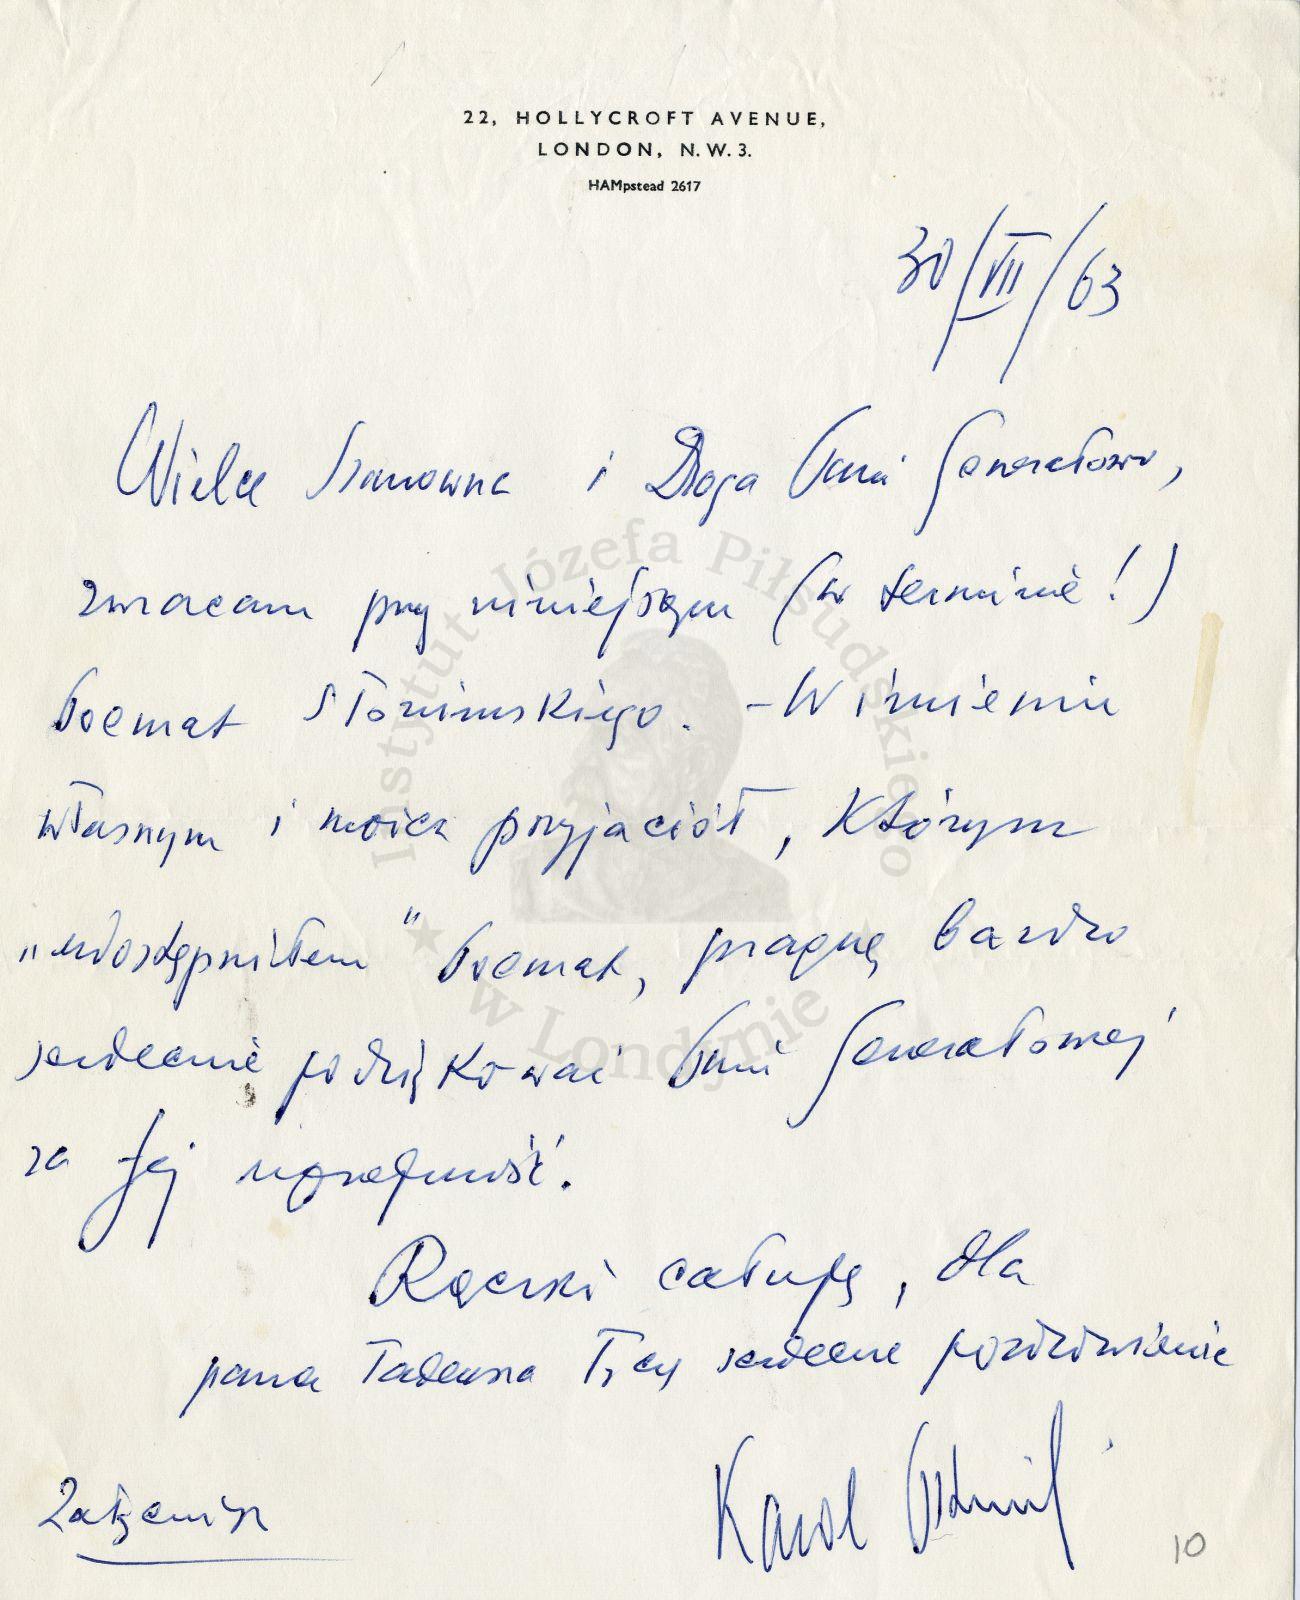 22, HOLLYCROFT AVENUE,
LONDON, N.W.3.
HAMpstead 2617
30/VII/63
Wielce Szanowna i Droga Pani Generałowo,
zwracam przy niniejszym (w terminie!)
Poemat Słonimskiego. - W imieniu
własnym i moich przyjaciół, którym
„udostępniłem" Poemat, pragnę bardzo
serdecznie podziękować Pani Generałowej
za Jej uprzejmość.
Rączki całuję, dla
pana Tadeusza łączę serdeczne pozdrowienie
Karol
Załącznik
10
Instytut Józefa Piłsudskiego
w Londynie